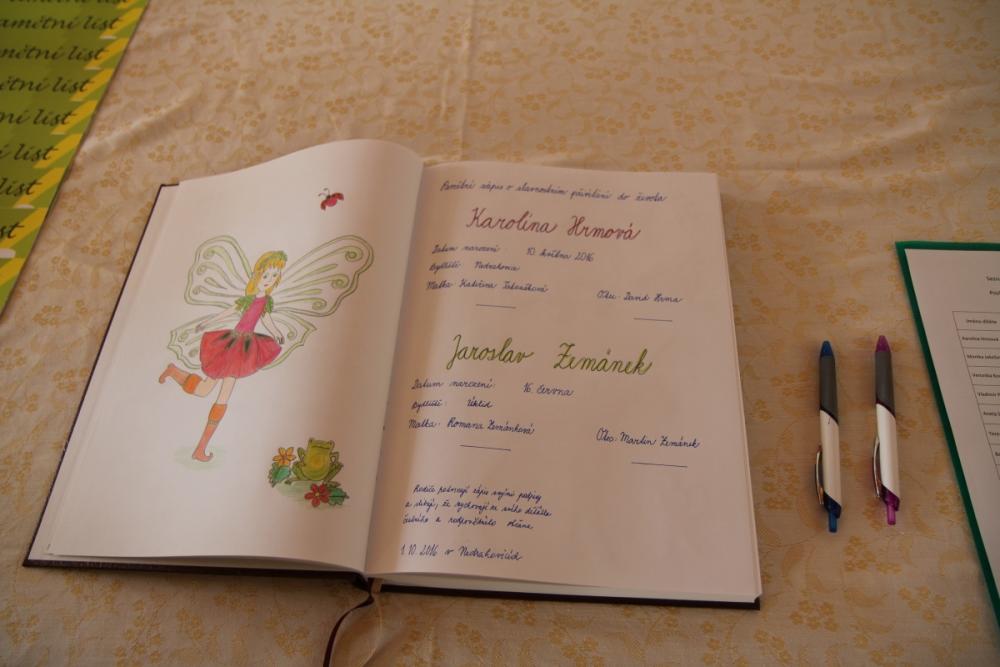 amětní list
amětní list
mětní list
ětní list
ní list
í list
list
st
Pamětní zápis o slavnostním přivítání do života
Karolína Hrmová
Datum narození: 10. května 2016
Bydliště: Nedrahovice
Matka: Kateřina Otec: David Hrma
Jaroslav Zemánek
Datum narození: 16. června
Bydliště: Úklid
Matka: Romana Zemánková Otec: Martin Zemánek
Rodiče potvrzují zápis svými podpisy
a slibují, že vychovají ze svého děťátka
čestného a odpovědného občana
1.10.2016 v Nedrahovicích
Jméno dítěte
Karolína Hrmová